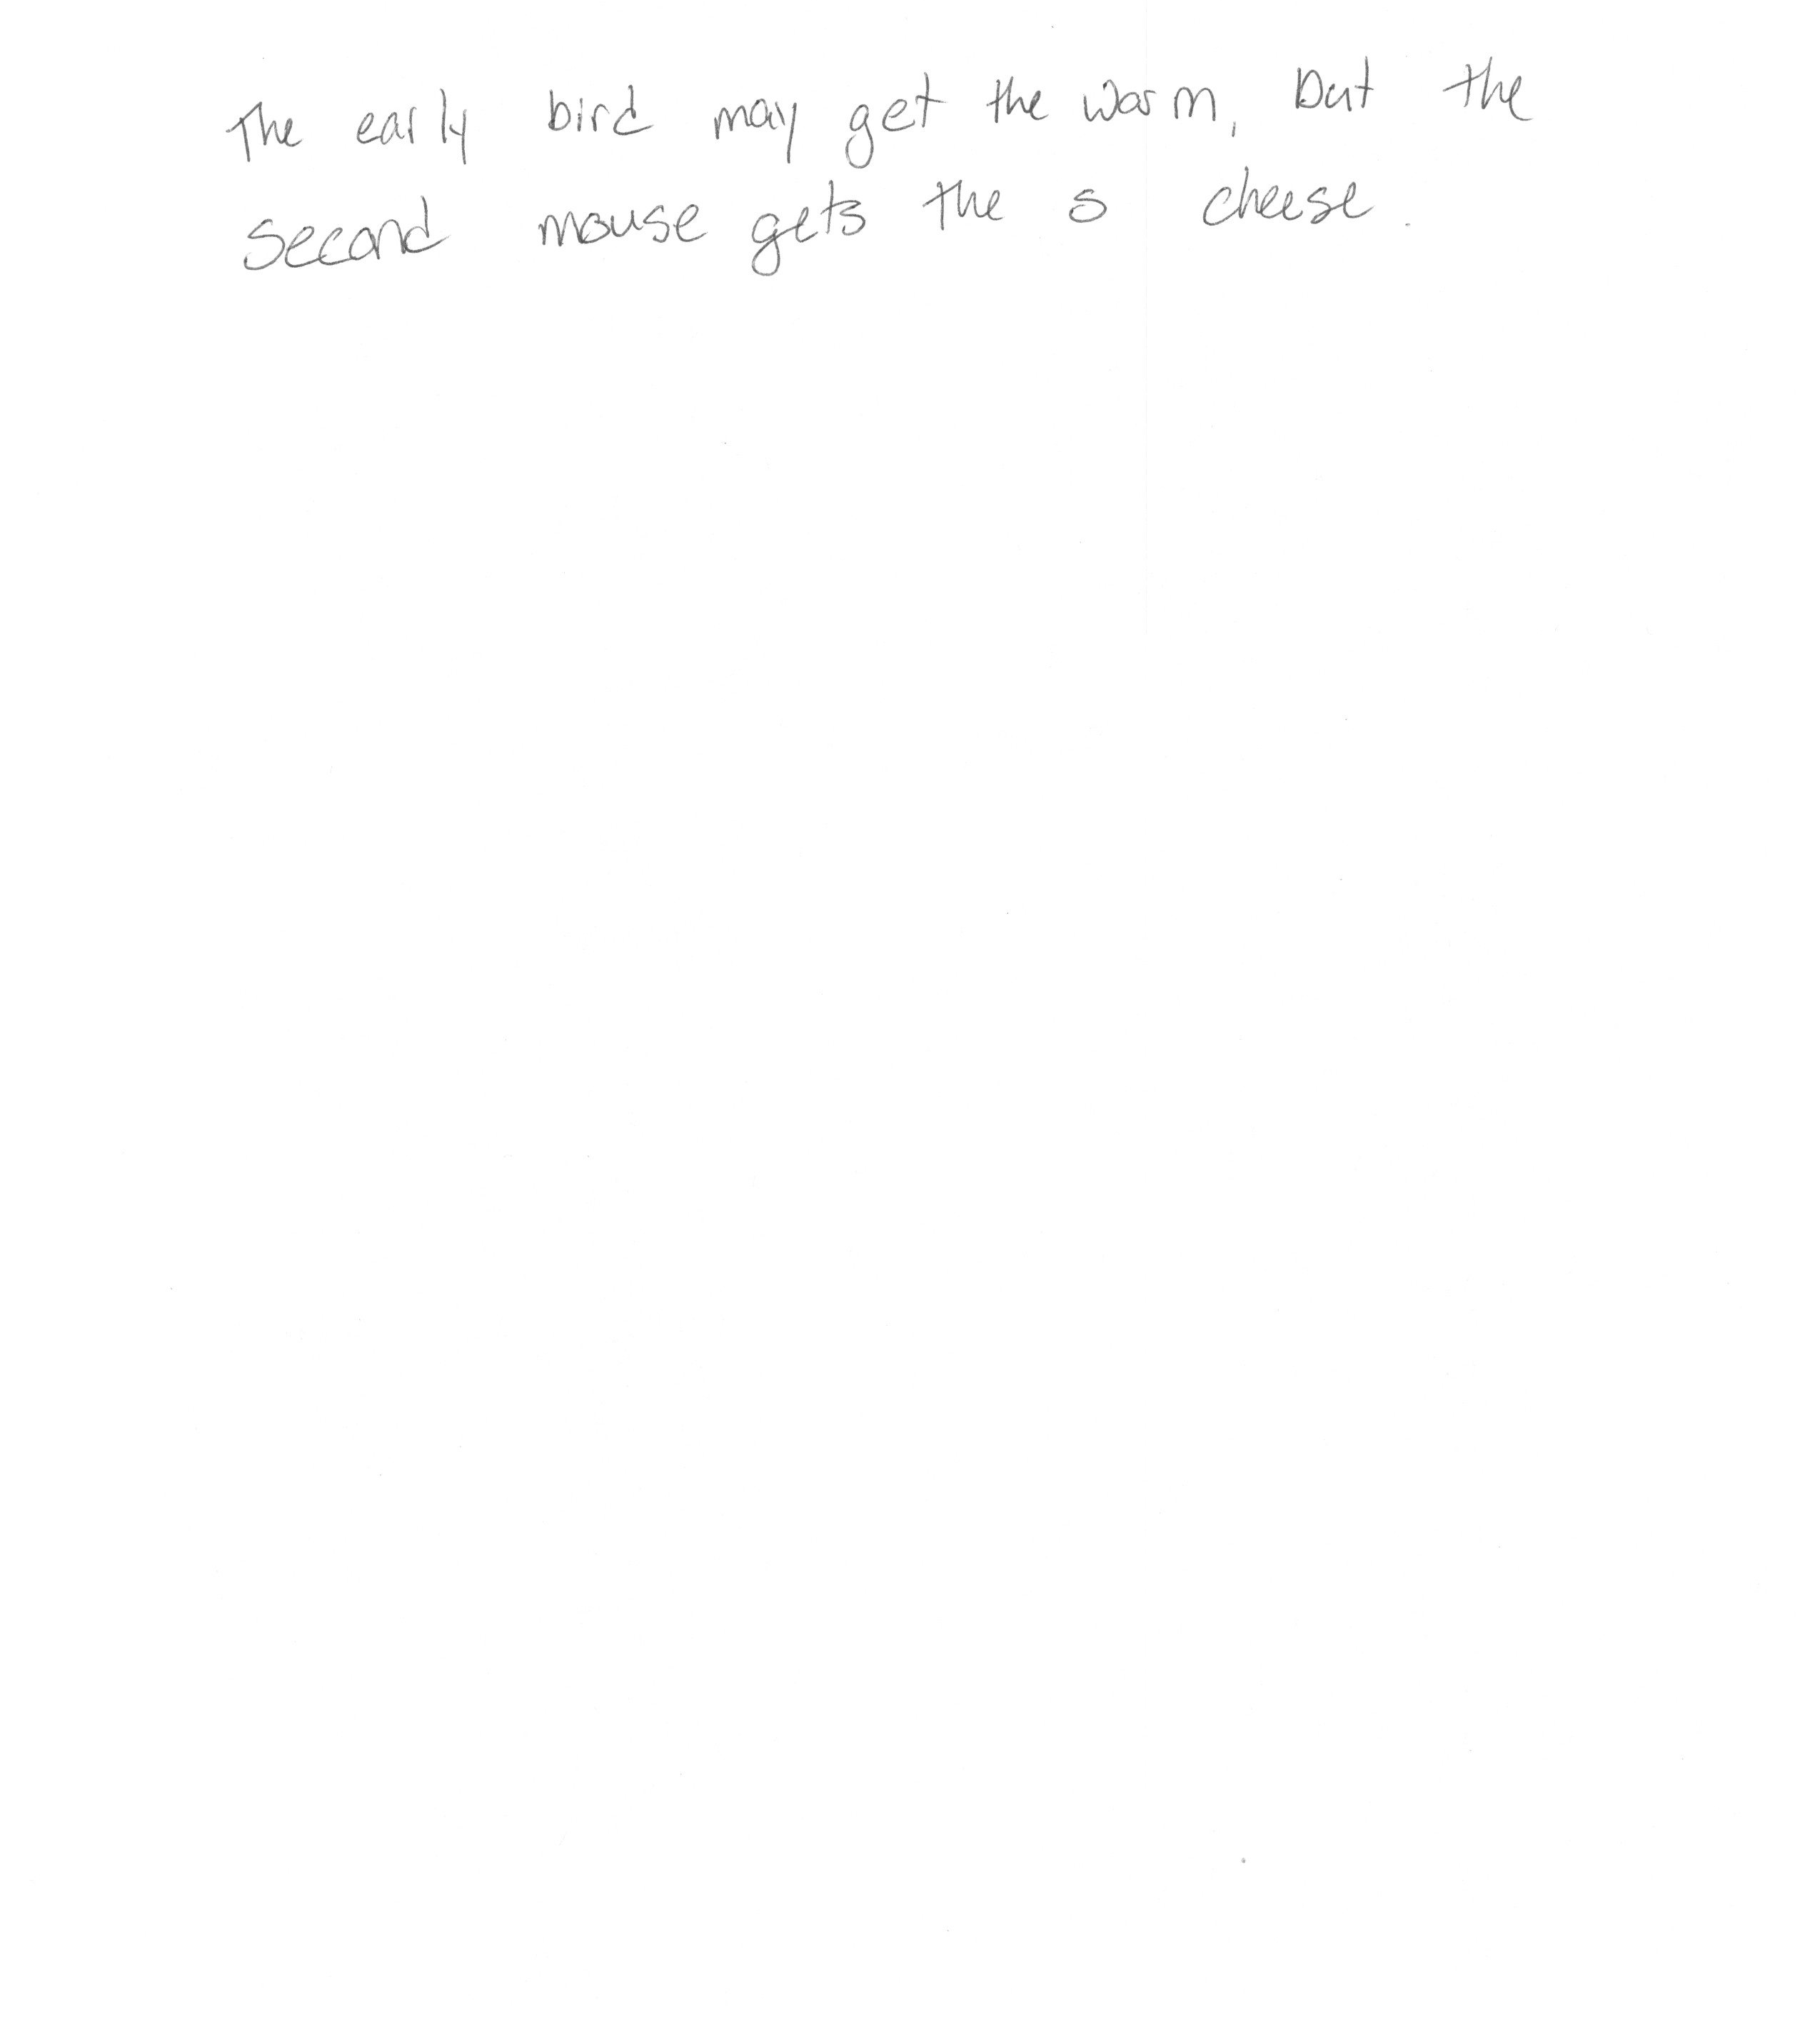 The early bird may get the worm, but the
second mouse gets the s cheese.